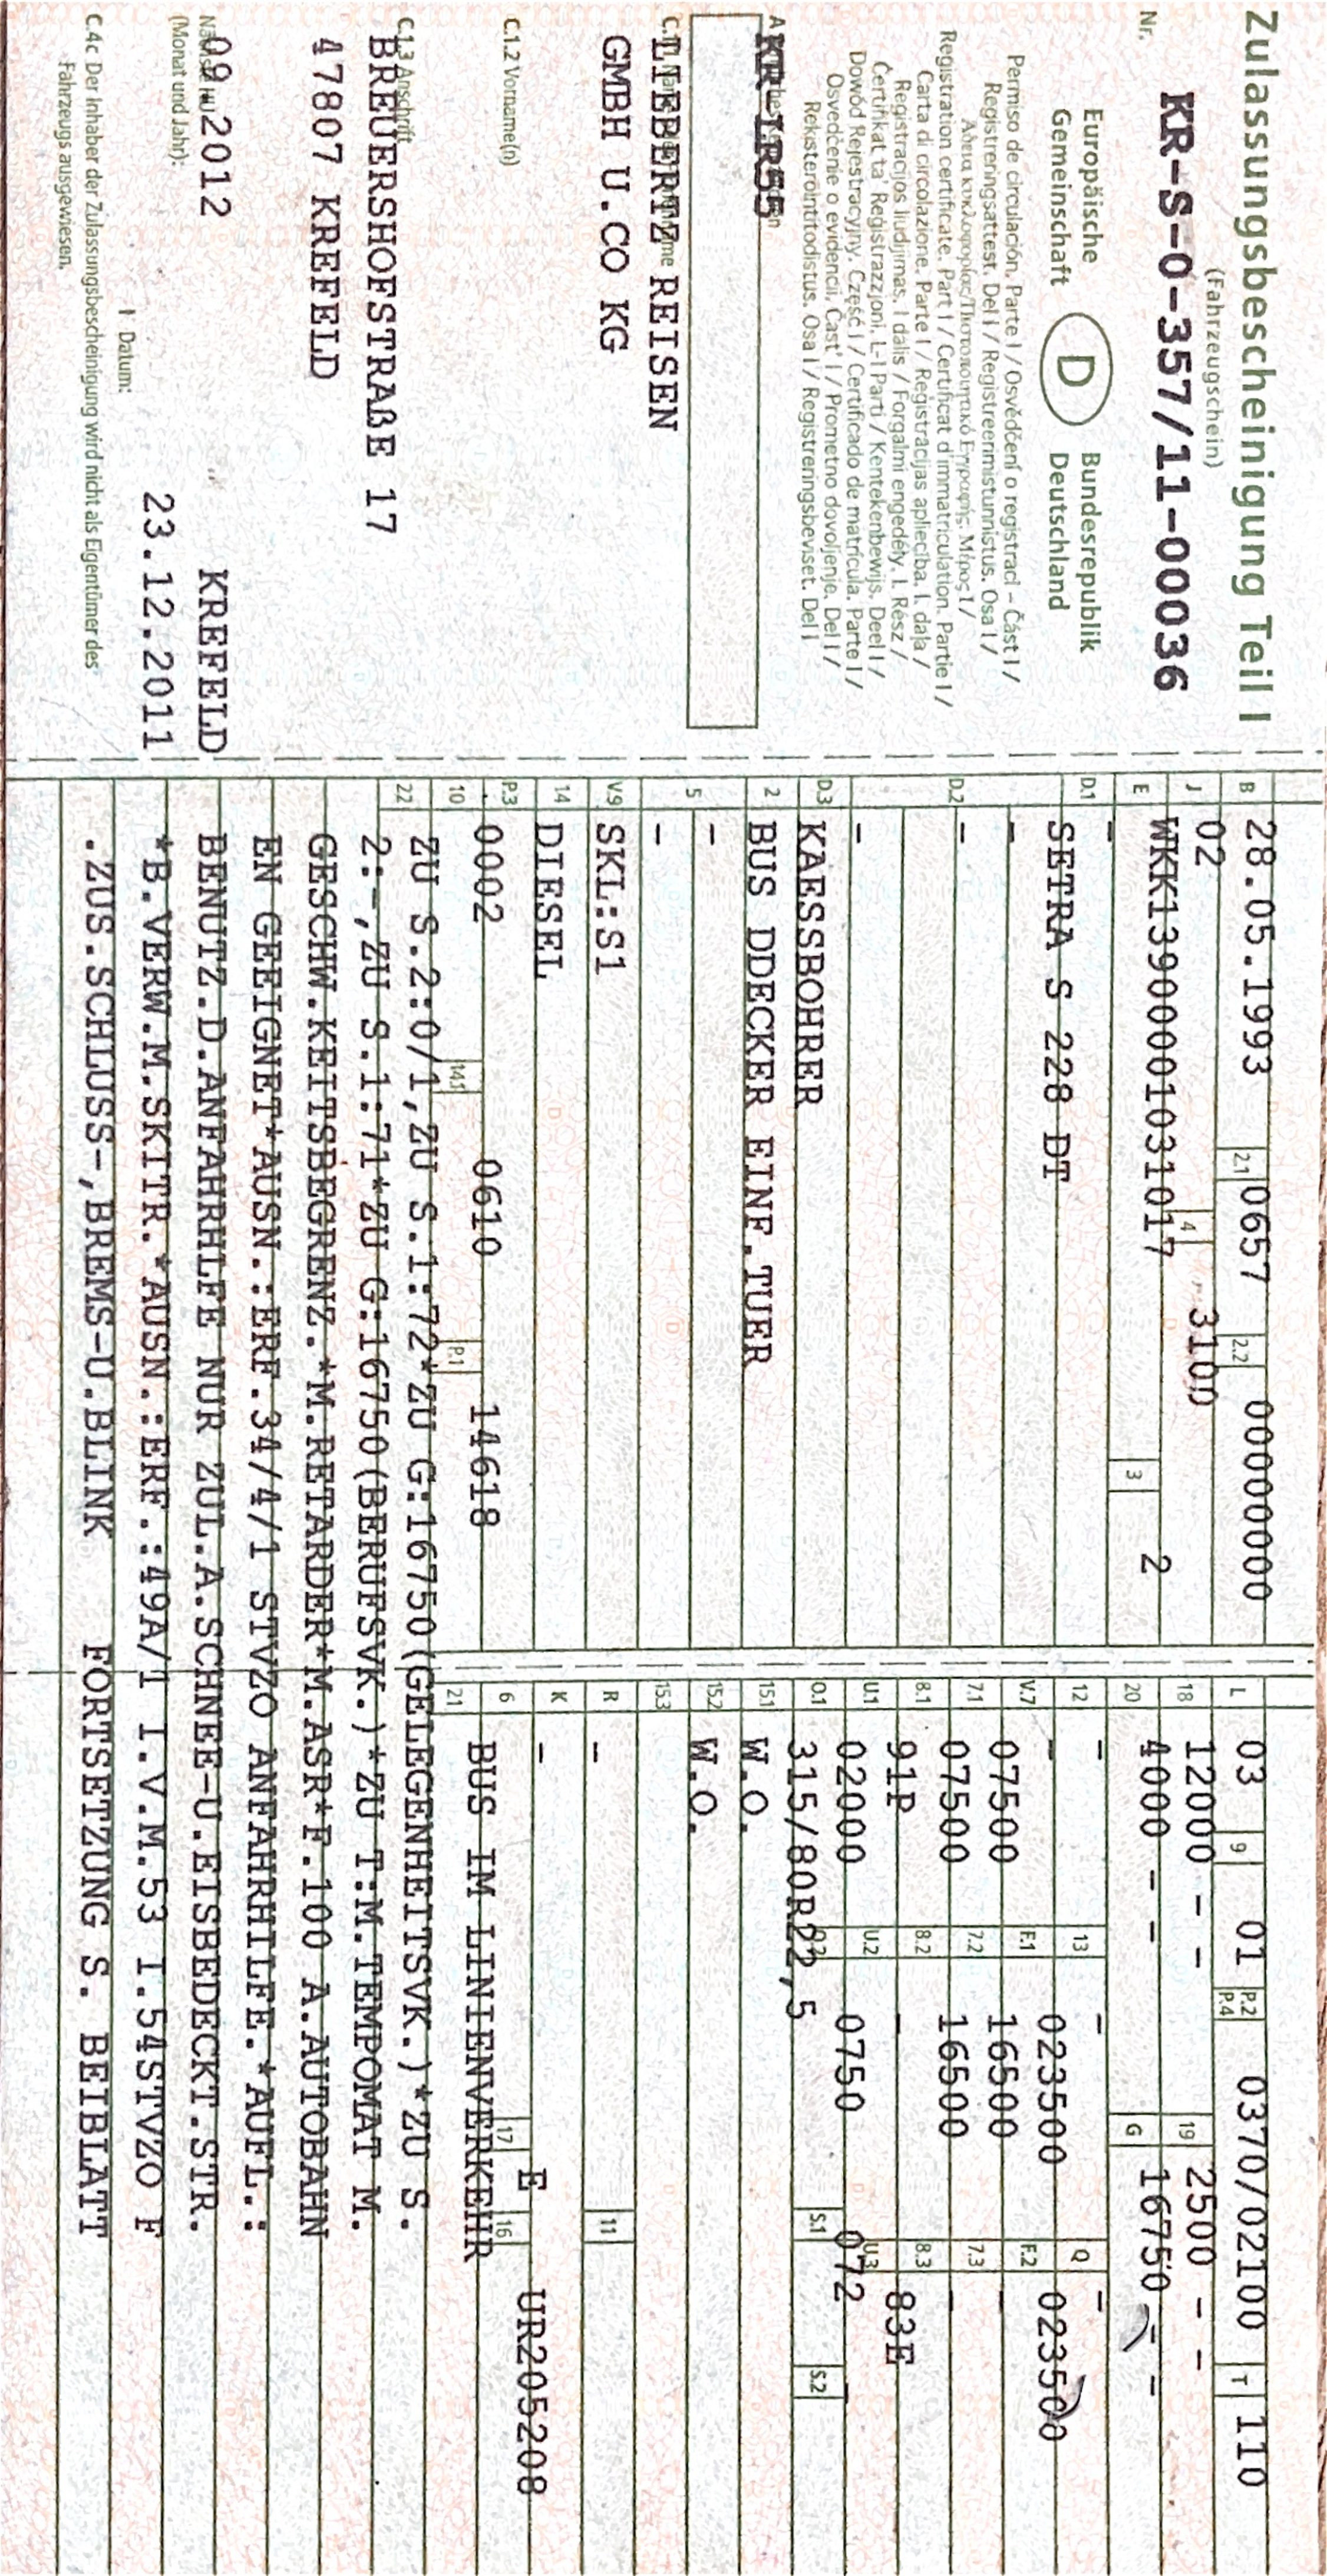 Zulassungsbescheinigung Teil I
(Fahrzeugschein)
Nr. KR-S-0-357/11-00036
Europäische Gemeinschaft
D
Bundesrepublik Deutschland
Permiso de circulación. Parte I / Osvědčení o registraci – Část I /
Registreringsattest. Del I / Registreerimistunnistus. Osa I /
Άδεια κυκλοφορίας/Πιστοποιητικό Εγγραφής. Μέρος I /
Registration certificate. Part I / Certificat d'immatriculation. Partie I /
Carta di circolazione. Parte I / Reģistrācijas apliecība. I. daļa /
Registracijos liudijimas. I dalis / Forgalmi engedély. I. Rész /
Ċertifikat ta' Reġistrazzjoni. L-I Parti / Kentekenbewijs. Deel I /
Dowód Rejestracyjny. Część I / Certificado de matrícula. Parte I /
Osvedčenie o evidencii. Časť I / Prometno dovoljenje. Del I /
Rekisteröintitodistus. Osa I / Registreringsbeviset. Del I
A
KR-LR55
LIEBERTZ REISEN
GMBH U.CO KG
C.1.2 Vorname(n)
C.1.3 Anschrift
BREUERSHOFSTRAßE 17
47807 KREFELD
09 2012 KREFELD
(Monat und Jahr):
23.12.2011
I Datum:
C.4c Der Inhaber der Zulassungsbescheinigung wird nicht als Eigentümer des
Fahrzeugs ausgewiesen.
B 28.05.1993 2.1 0657 2.2 00000000
J 02 4 3100
E WKK13900001031017 3 2
D.1 -
SETRA S 228 DT
-
D.2 -
-
D.3 KAESSBOHRER
2 BUS DDECKER EINF.TUER
5 -
-
V.9 SKL:S1
14 DIESEL
P.3 0002 14.1 0610 P.1 14618
10
L 03 9 01 P.2 P.4 0370/02100 T 110
18 12000 - - 19 2500 - -
20 4000 - - G 16750 - -
12 - 13 - Q -
V.7 - F.1 023500 F.2 023500
7.1 07500 7.2 16500 7.3 -
8.1 07500 8.2 16500 8.3 -
U.1 91P U.2 - U.3 83E
O.1 02000 O.2 0750 S.1 072 S.2 -
15.1 315/80R22,5
15.2 W.O.
15.3 W.O.
R - 11
K -
6 - 17 E 16 UR205208
21 BUS IM LINIENVERKEHR
22 ZU S.2:0/1,ZU S.1:72*ZU G:16750(GELEGENHEITSVK.)*ZU S.
2:-,ZU S.1:71*ZU G:16750(BERUFSVK.)*ZU T:M.TEMPOMAT M.
GESCHW.KEITSBEGRENZ.*M.RETARDER*M.ASR*F.100 A.AUTOBAHN
EN GEEIGNET*AUSN.:ERF.34/4/1 STVZO ANFAHRHILFE.*AUFL.:
BENUTZ.D.ANFAHRHLFE NUR ZUL.A.SCHNEE-U.EISBEDECKT.STR.
*B.VERW.M.SKITR.*AUSN.:ERF.:49A/1 I.V.M.53 I.54STVZO F
.ZUS.SCHLUSS-,BREMS-U.BLINK FORTSETZUNG S. BEIBLATT